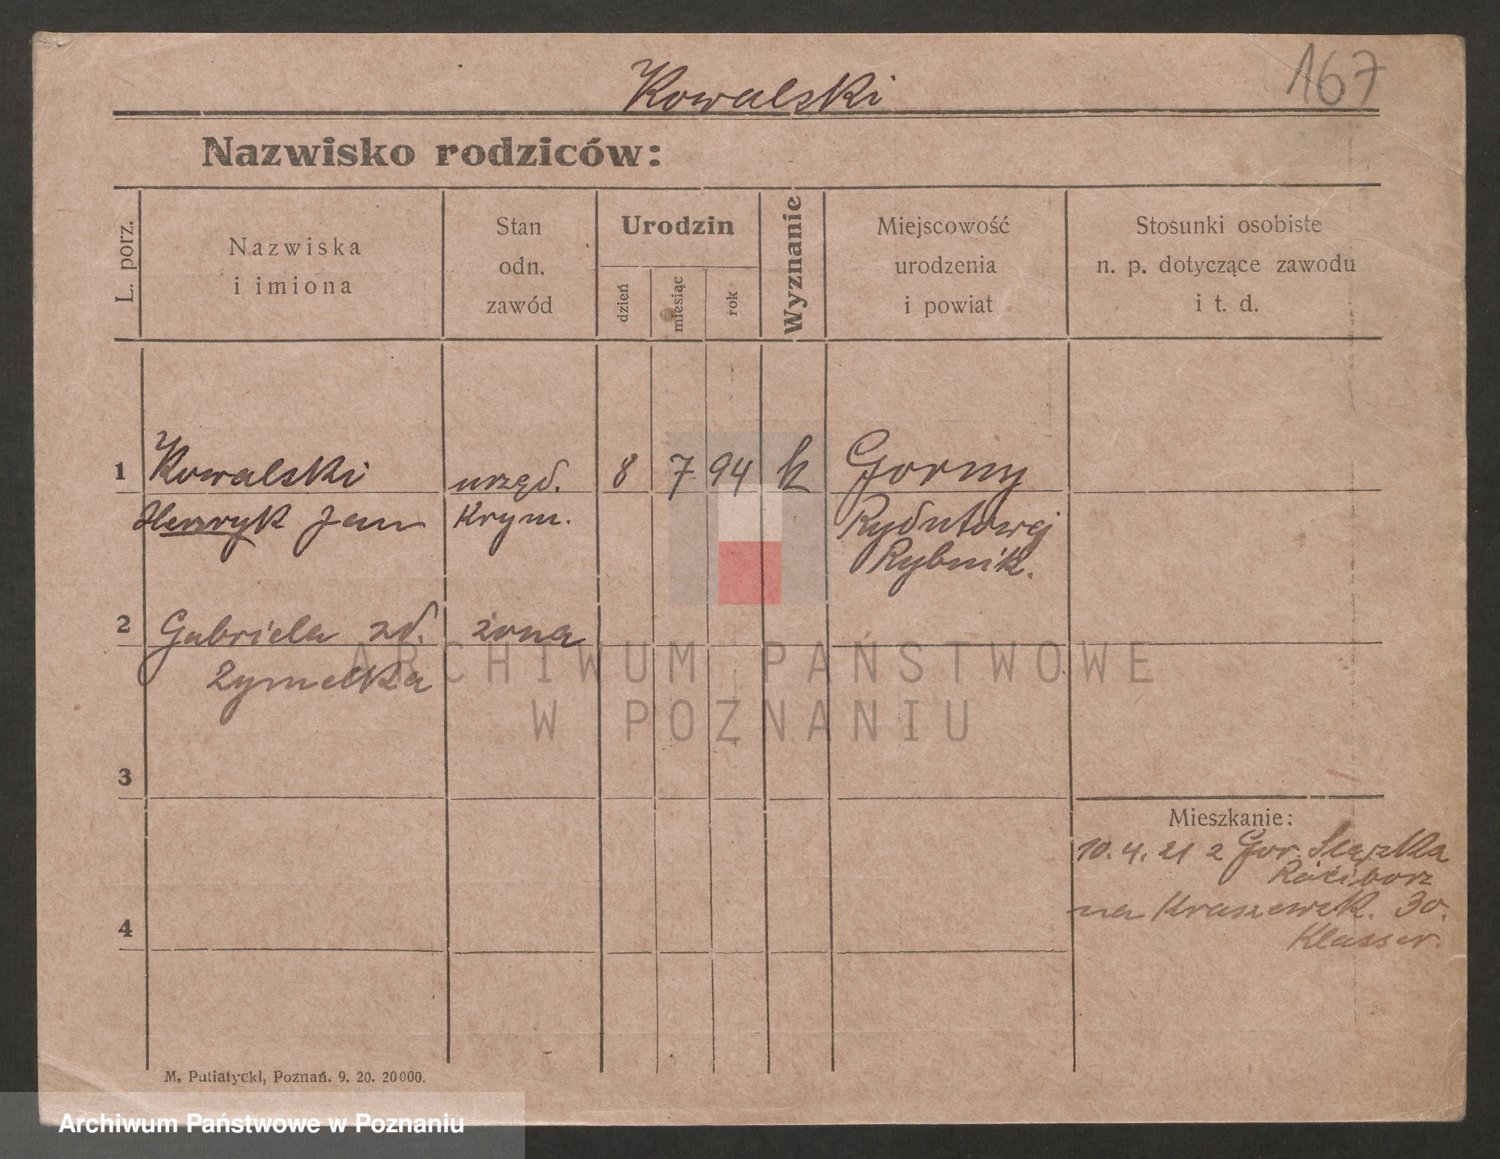 Kowalski
167
Nazwisko rodziców:
L. porz.
Nazwiska
i imiona
Stan
odn.
zawód
Urodzin
dzień
miesiąc
rok
Wyznanie
Miejscowość
urodzenia
i powiat
Stosunki osobiste
n. p. dotyczące zawodu
i t. d.
1 Kowalski urzęd. 8 7 94 k Gorny
Henryk Jan Krym. Rydutowej
Rybnik.
2 Gabriela zd. żona
Zymelka
ARCHIWUM PAŃSTWOWE
W POZNANIU
3
Mieszkanie:
10.4.21 z Gor. Slązka
Raciborz
na Kraszewsk. 30.
4
M. Putiatycki, Poznań. 9. 20. 20000.
Archiwum Państwowe w Poznaniu